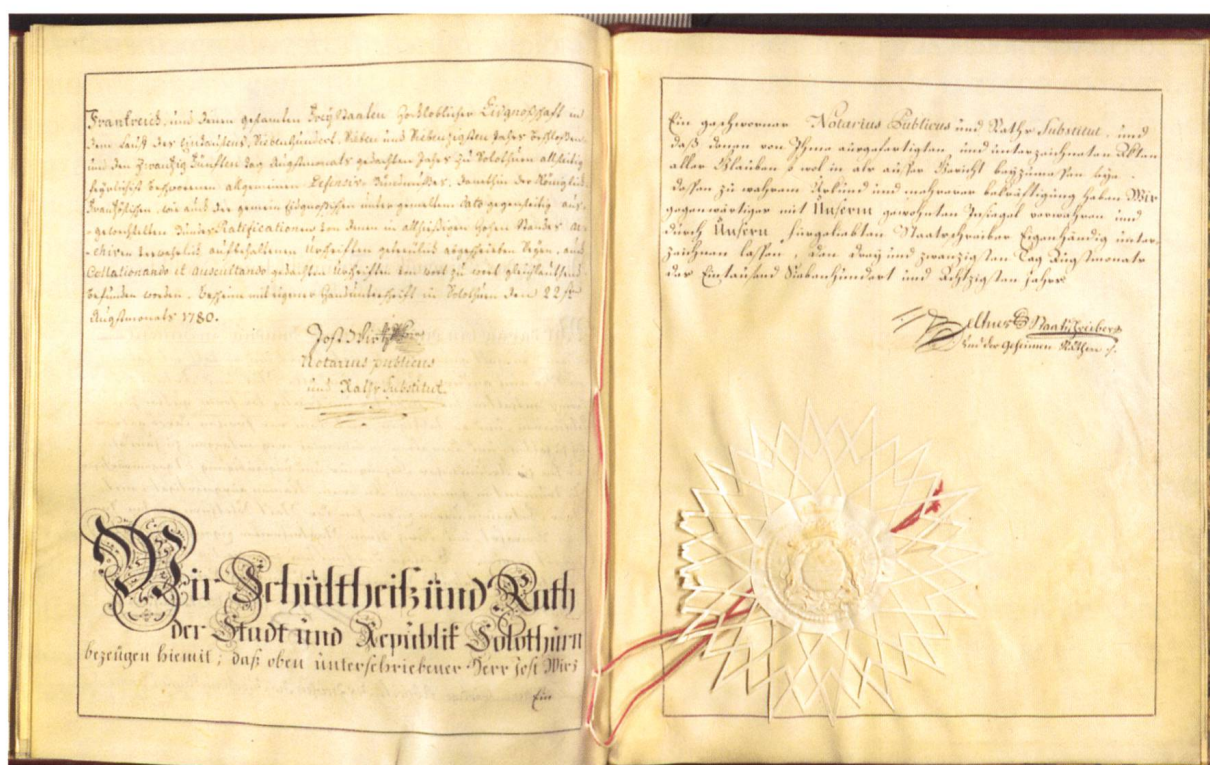 Franckreich, und denen gesamten Freystaaten Hochloblicher Eidgnoßschaft in
dem Lauf des Eintausend, Siebenhundert, Sieben und Siebenzigsten Jahrs beschloßenen
und den Zwanzig Fünften Tag Augstmonats gedachten Jahrs zu Solothurn allseitig
feyerlich beschwornen allgemeinen Defensiv Bündnußes, denethin der Königlich
Französischen, wie auch der gemein Eidgnoßischen unter gemeltem dato gegenseitig aus-
gewechselten Bundes Ratificationen von denen in allhiesigen Hohen Standes Ar-
chiven verwahrlich aufbehaltenen Urschriften getreülich abgeschrieben seyen, auch
Collationando et Auscultando gedachten Urschriften von wort zu wort gleichlautend
befunden worden. Bescheine mit eigener Handunterschrift in Solothurn den 22ten
Augstmonats 1780.
Jost Wirz
Notarius publicus
und Raths Substitut.
Wir Schültheiß ünd Rath
der Stadt und Republik Solothürn
bezeügen hiemit; daß oben ünterschriebener Herr Jost Wirz
Ein
Ein geschworner Notarius Publicus und Raths Substitut, und
daß denen von Ihme ausgefertigten und unterzeichneten Akten
aller Glauben so wol in als ausser Gericht beyzumessen seye.
Dessen zu wahrem Urkund und mehrerer bekräftigung haben Wir
gegenwärtiges mit Ünserm gewohnten Insiegel verwahren und
durch Ünsern fürgeliebten Staatschreiber Eigenhändig unter-
zeichnen lassen, den drey und zwanzigsten Tag Augstmonats
des Eintausend Siebenhundert und Achtzigsten Jahrs.
Zeltner Staatschreiber
und der Geheimen Räthen